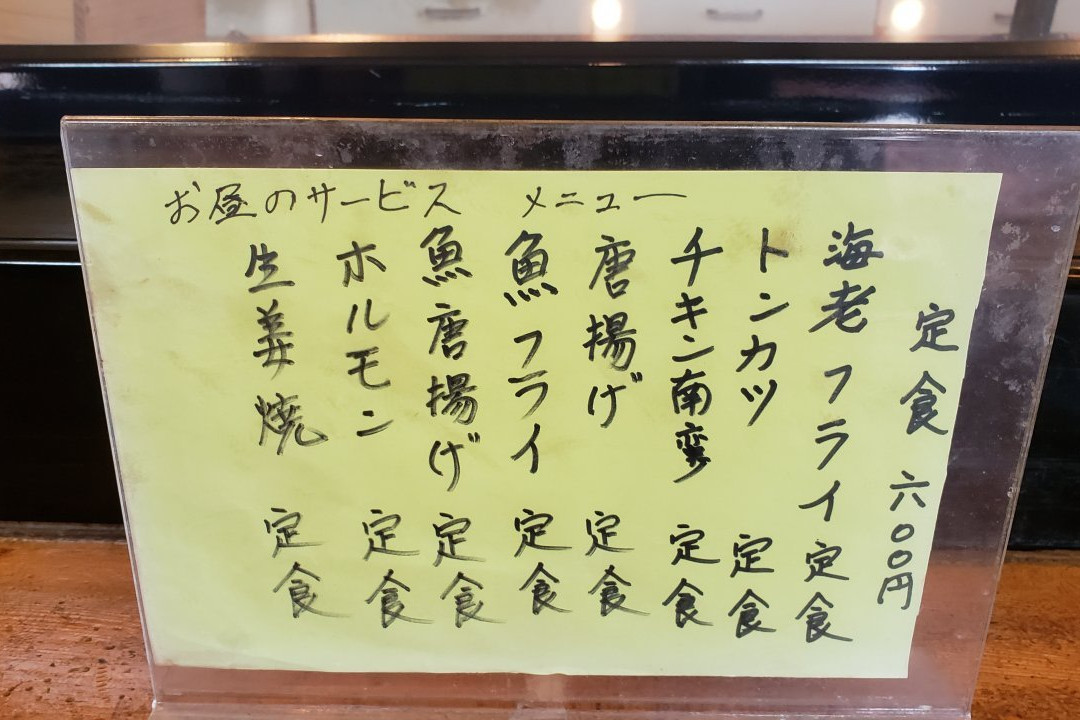 お昼のサービス メニュー
定食 六〇〇円
海老フライ定食
トンカツ 定食
チキン南蛮 定食
唐揚げ 定食
魚フライ 定食
魚唐揚げ 定食
ホルモン 定食
生姜焼 定食